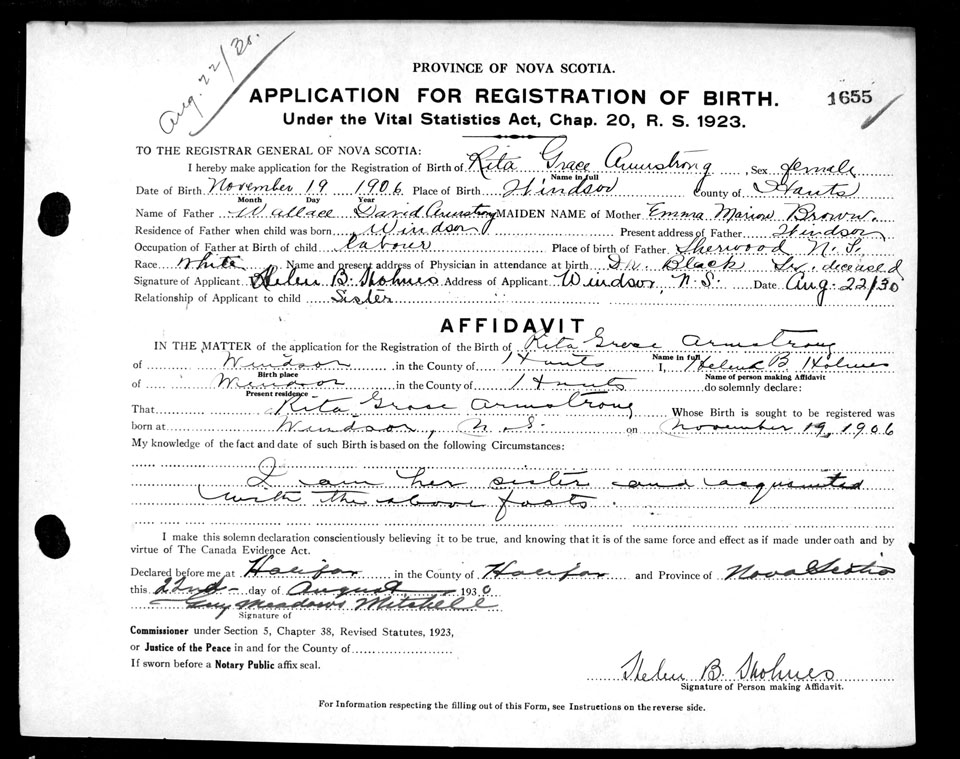 Aug. 22/30.
PROVINCE OF NOVA SCOTIA.
APPLICATION FOR REGISTRATION OF BIRTH.
1655
Under the Vital Statistics Act, Chap. 20, R. S. 1923.
TO THE REGISTRAR GENERAL OF NOVA SCOTIA:
I hereby make application for the Registration of Birth of Rita Grace Armstrong, Sex female
Name in full
Date of Birth November 19 1906 Place of Birth Windsor County of Hants
Month Day Year
Name of Father Wallace David Armstrong MAIDEN NAME of Mother Emma Marion Brown.
Residence of Father when child was born Windsor Present address of Father Windsor
Occupation of Father at Birth of child labour Place of birth of Father Sherwood N. S.
Race White Name and present address of Physician in attendance at birth Dr. Black Sr. deceased
Signature of Applicant Helen B. Holmes Address of Applicant Windsor, N. S. Date Aug. 22/30
Relationship of Applicant to child Sister
AFFIDAVIT
IN THE MATTER of the application for the Registration of the Birth of Rita Grace Armstrong
Name in full
of Windsor in the County of Hants I, Helen B. Holmes
Birth place Name of person making Affidavit
of Windsor in the County of Hants do solemnly declare:
Present residence
That Rita Grace Armstrong Whose Birth is sought to be registered was
born at Windsor, N. S. on November 19, 1906
My knowledge of the fact and date of such Birth is based on the following Circumstances:
I am her sister and acquainted
with the above facts.
I make this solemn declaration conscientiously believing it to be true, and knowing that it is of the same force and effect as if made under oath and by
virtue of The Canada Evidence Act.
Declared before me at Halifax in the County of Halifax and Province of Nova Scotia
this 22nd day of August 1930
Guy Meadows Mitchell
Signature of
Commissioner under Section 5, Chapter 38, Revised Statutes, 1923,
or Justice of the Peace in and for the County of
If sworn before a Notary Public affix seal.
Helen B. Holmes
Signature of Person making Affidavit.
For Information respecting the filling out of this Form, see Instructions on the reverse side.